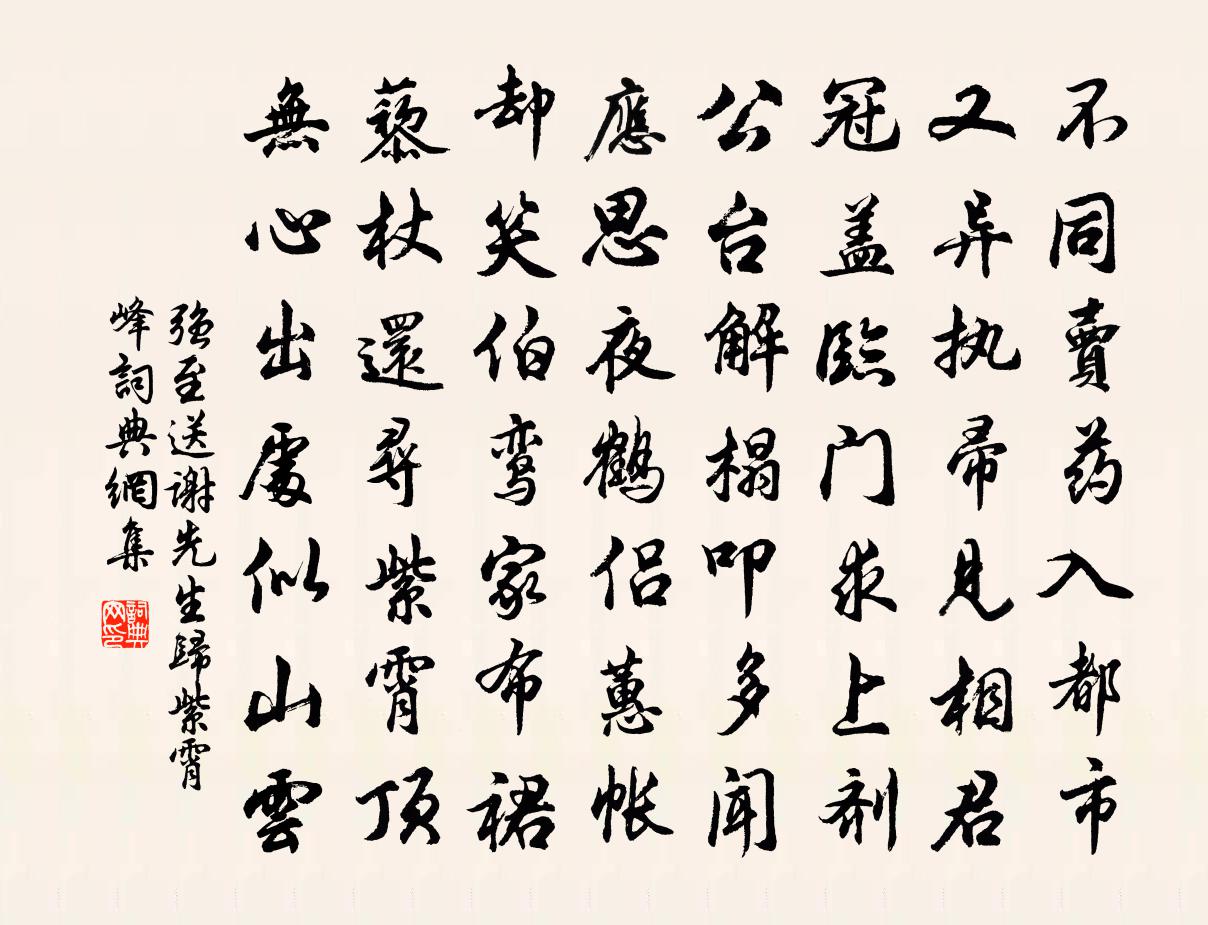 不同賣药入都市
又异执帚見相君
冠盖臨门求上剂
公台解榻叩多闻
應思夜鹤侣蕙帐
却笑伯鸾家布裙
藜杖還尋紫霄顶
無心出處似山雲
强至送謝先生歸紫霄
峰詞典網集
詞典网印